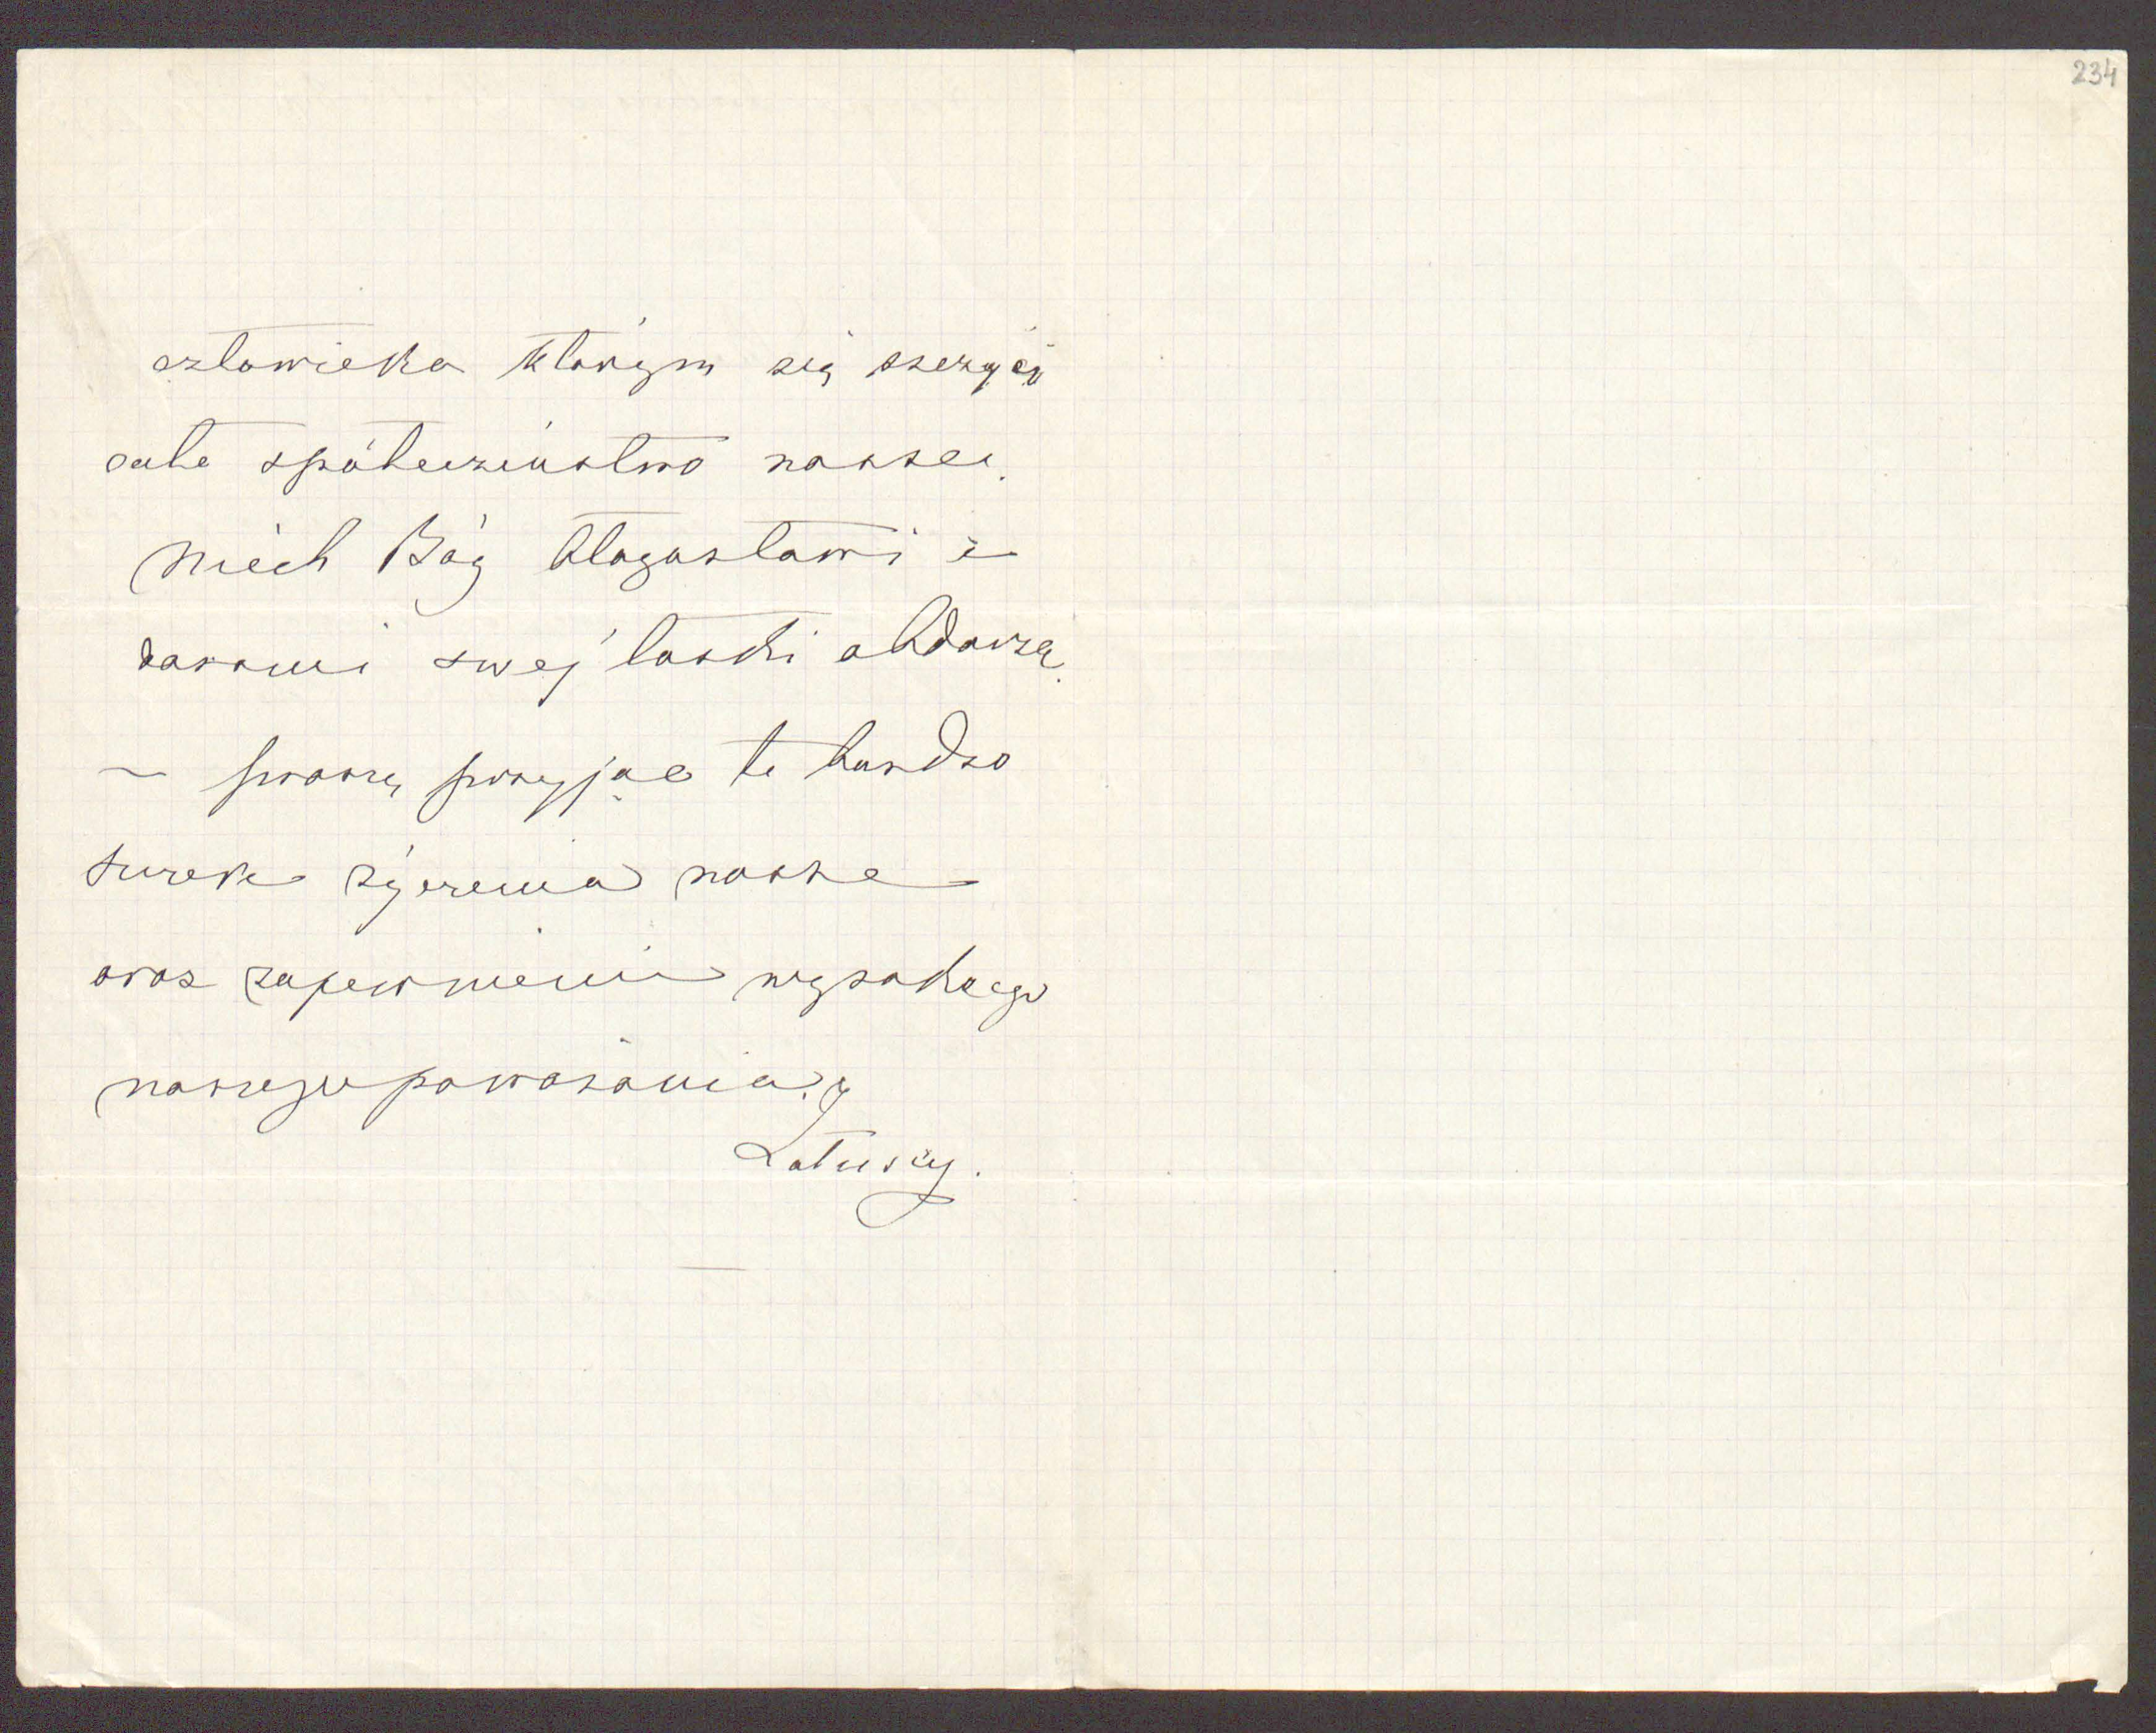 234
człowieka którym się szczyci
całe społeczeństwo nasze.
Niech Bóg błogosławi i
darami swej łaski obdarza.
— proszę przyjąć te bardzo
życzenia nasze
oraz zapewnienie wysokiego
naszego poważania.